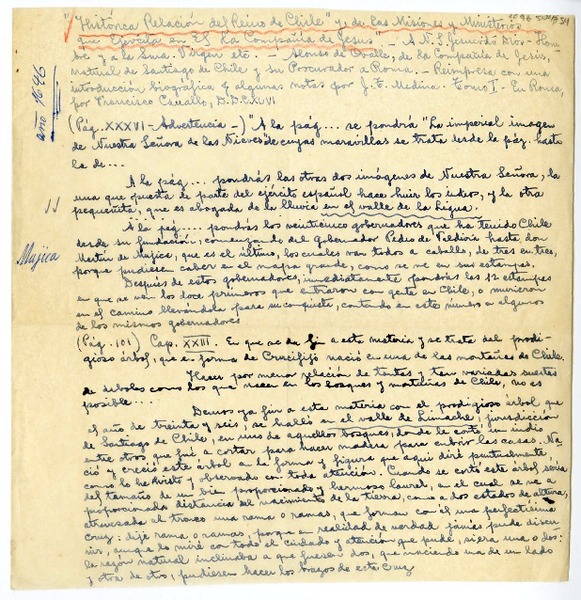 "Histórica Relación del Reino de Chile" y de las Misiones y Ministerios
que Ejercita en Él La Compañía de Jesus" - A N. S. Jesucristo Dios-Hom-
bre y a la Sma. Virgen etc. - Alonso de Ovalle, de la Compañía de Jesús,
natural de Santiago de Chile y su Procurador a Roma. - Reimpresa con una
introducción biográfica y algunas notas por J. T. Medina. Tomo I. En Roma,
por Francisco Cavallo,
año 1646
(Pág. XXXVI - Advertencia -) "A la pág... se pondrá "La imperial imagen
de Nuestra Señora de las Nieves" de cuyas maravillas se trata desde la pág. hasta
la de...
A la pág... pondrás las otras dos imágenes de Nuestra Señora, la
una que puesta de parte del ejército español hace huir los indios, y la otra
pequeñita, que es abogada de la lluvia en el valle de la Ligua.
A la pág... pondrás los veinticinco gobernadores que ha tenido Chile
desde su fundación, comenzando del gobernador Pedro de Valdivia hasta don
Martín de Mujica, que es el último, los cuales van todos a caballo, de tres en tres,
porque pudiesen caber en el mapa grande, como se ve en sus estampas.
Mujica
Despues de estos gobernadores, inmediatamente pondrás las 12 estampas
en que se ven los doce primeros que entraron con gente en Chile, o murieron
en el camino llevándola para su conquista, contando en este número en algunos
de los mismos gobernadores
(Pág. 101) Cap. XXIII. En que se da fin a esta materia y se trata del prodi-
gioso árbol, que en forma de Crucifijo nació en una de las montañas de Chile.
Hacer por menor relación de tantas y tan variadas suertes
de árboles como los que nacen en los bosques y montañas de Chile, no es
posible...
Demos ya fin a esta materia con el prodigioso árbol que
el año de treinta y seis, se halló en el valle de Limache, jurisdicción
de Santiago de Chile, en uno de aquellos bosques, donde le cortó un indio
entre otros que fué a cortar para hacer madera para cubrir las casas. Na-
ció y creció este árbol en la forma y figura que aquí diré puntualmente,
como lo he visto y observado con toda atención. Cuando se cortó este árbol sería
del tamaño de un bien proporcionado y hermoso laurel, en el cual se ve a
proporcionada distancia del nacimiento de la tierra, como a dos estados de altura,
atravesada al tronco una rama o ramas, que forman con él una perfectísima
cruz: dije rama o ramas, porque en realidad de verdad jamás pude discer-
nir, aunque lo miré con todo el cuidado y atención que pude, si era una o dos:
la razón natural inclinaba a que fuesen dos, que naciendo una de un lado
y otra de otro, pudiesen hacer los brazos de esta cruz